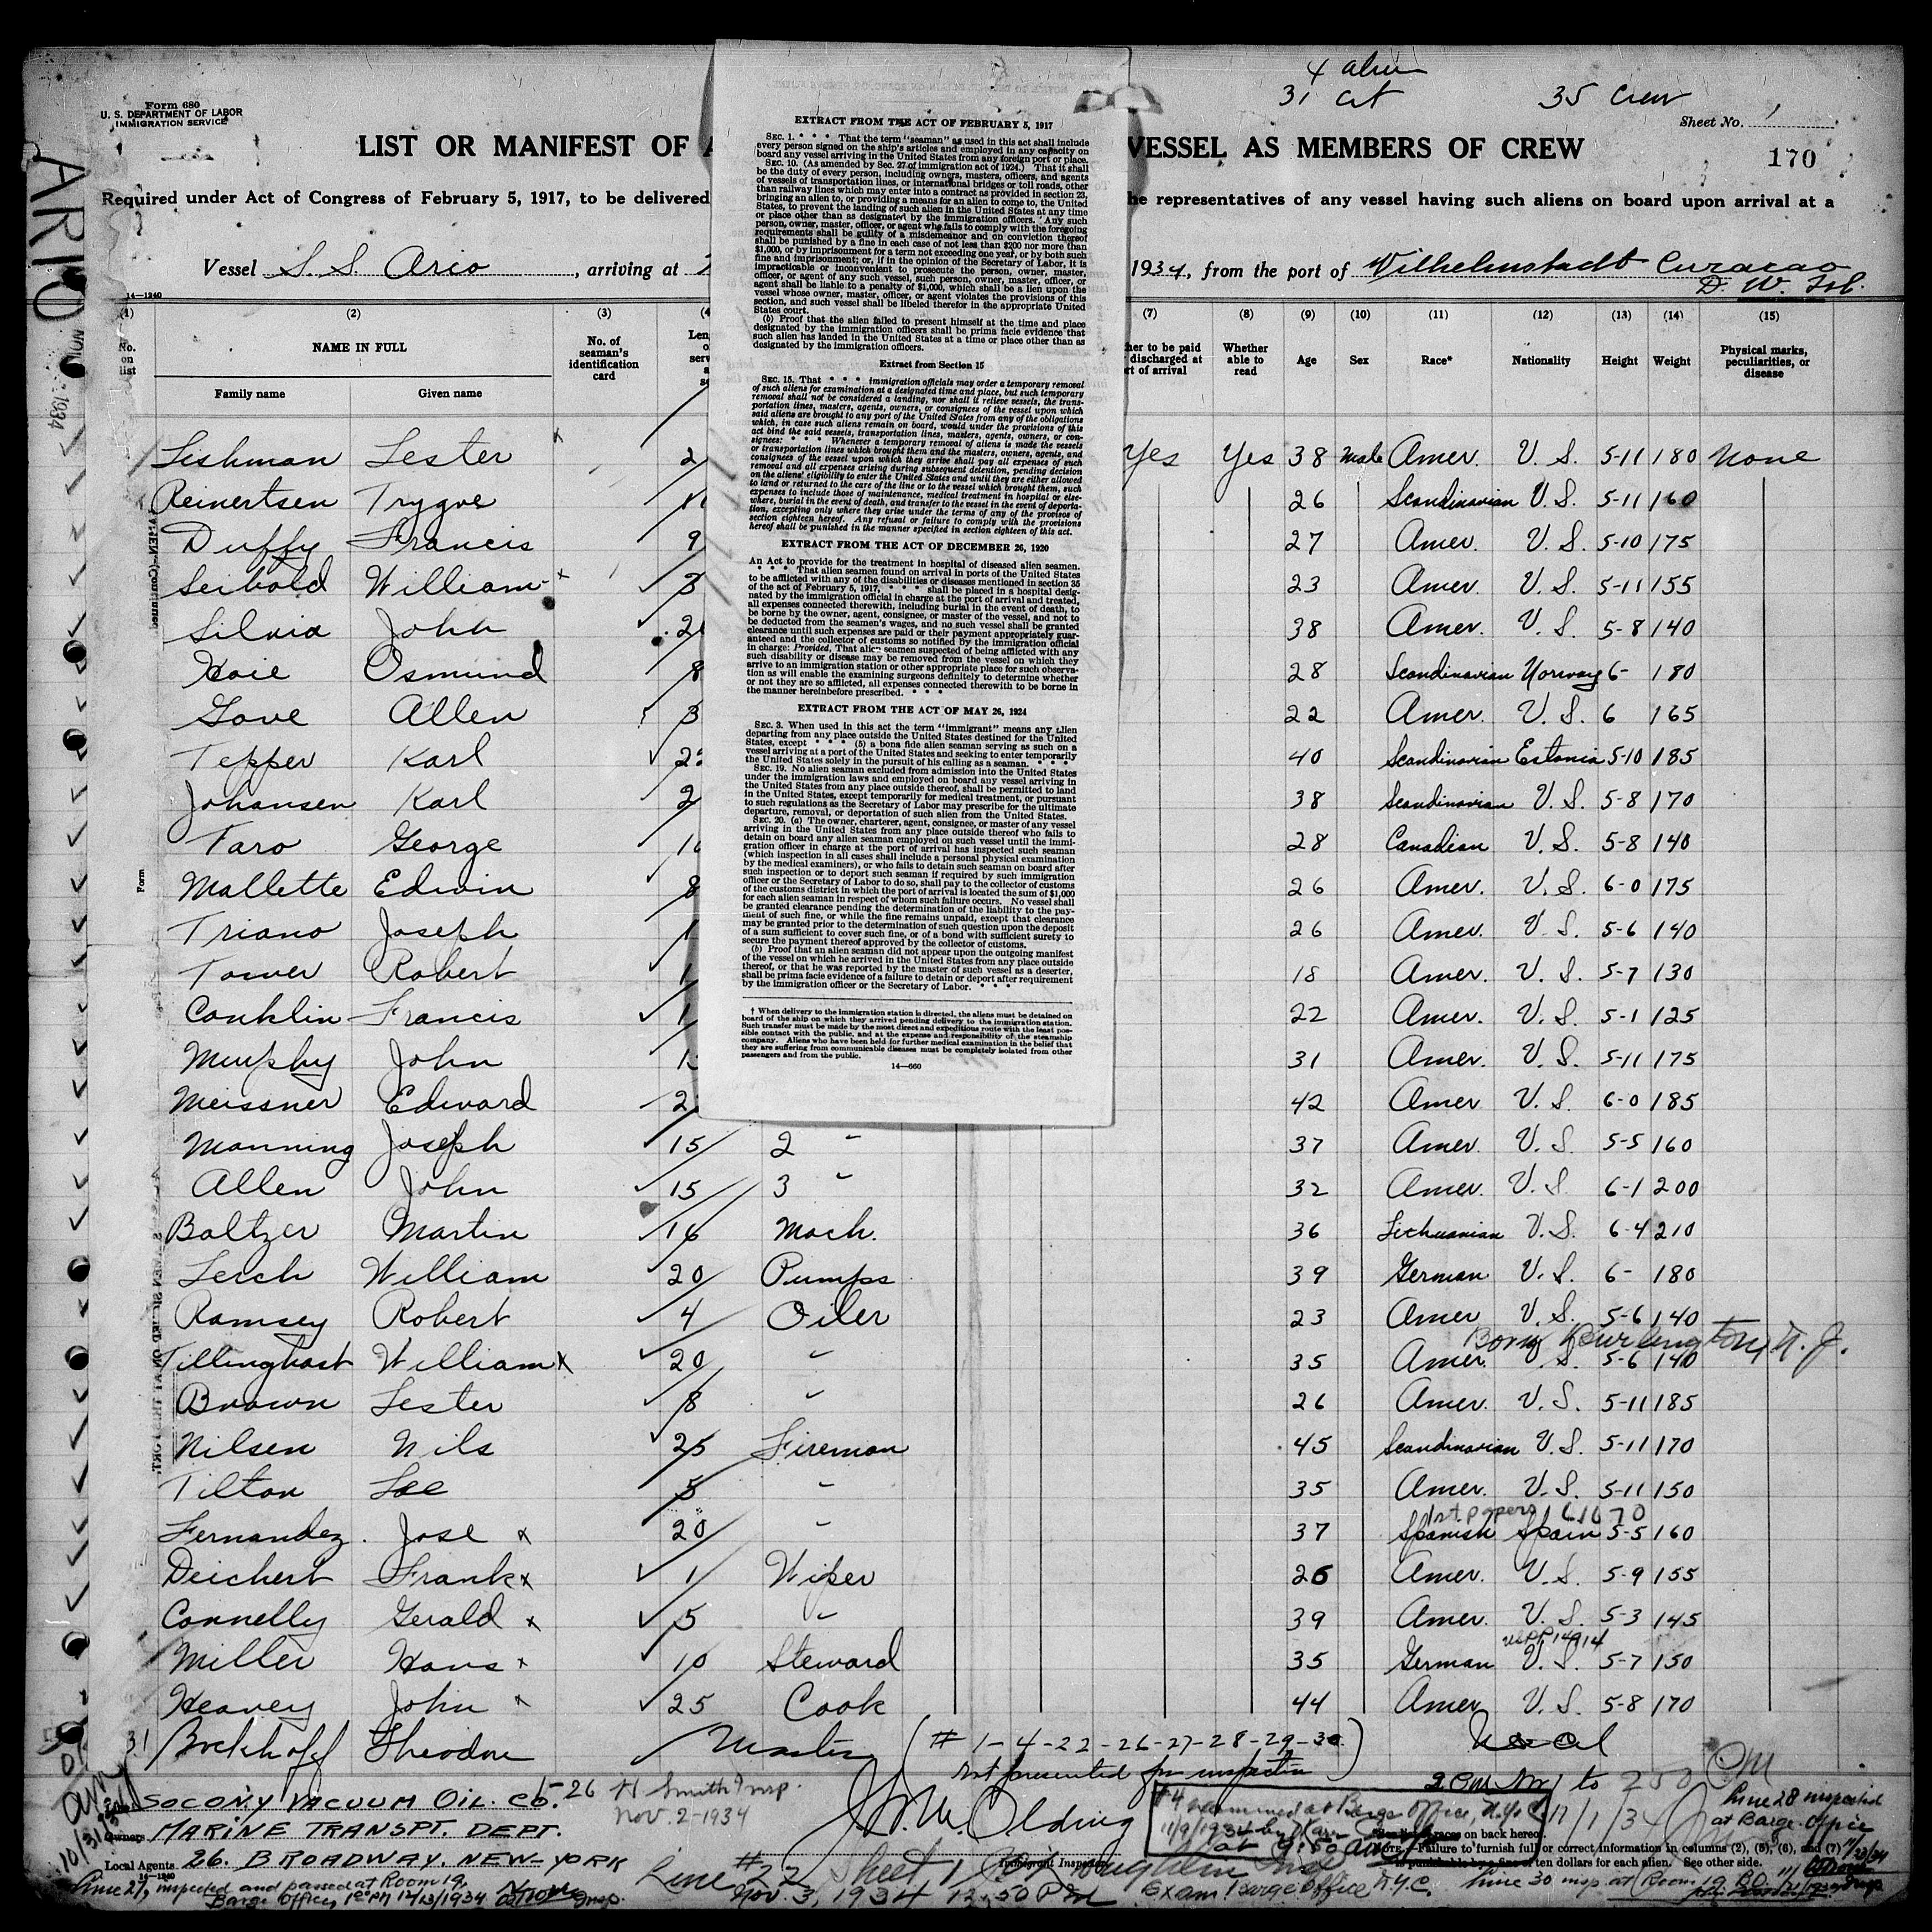 4 alien
31 Cit 35 Crew
Form 680
U. S. DEPARTMENT OF LABOR
IMMIGRATION SERVICE
Sheet No. 1
LIST OR MANIFEST OF A VESSEL AS MEMBERS OF CREW
170
Required under Act of Congress of February 5, 1917, to be delivered he representatives of any vessel having such aliens on board upon arrival at a
Vessel S. S. Arco, arriving at 1934, from the port of Wilhelmstadt Curacao
D. W. Isl.
14-1240
ARIO
EXTRACT FROM THE ACT OF FEBRUARY 5, 1917
SEC. 1. * * * That the term "seaman" as used in this act shall include
every person signed on the ship's articles and employed in any capacity on
board any vessel arriving in the United States from any foreign port or place.
SEC. 10. (As amended by Sec. 27 of immigration act of 1924.) That it shall
be the duty of every person, including owners, masters, officers, and agents
of vessels of transportation lines, or international bridges or toll roads, other
than railway lines which may enter into a contract as provided in section 23,
bringing an alien to, or providing a means for an alien to come to, the United
States, to prevent the landing of such alien in the United States at any time
or place other than as designated by the immigration officers. Any such
person, owner, master, officer, or agent who fails to comply with the foregoing
requirements shall be guilty of a misdemeanor and on conviction thereof
shall be punished by a fine in each case of not less than $200 nor more than
$1,000, or by imprisonment for a term not exceeding one year, or by both such
fine and imprisonment; or, if in the opinion of the Secretary of Labor, it is
impracticable or inconvenient to prosecute the person, owner, master,
officer, or agent of any such vessel, such person, owner, master, officer, or
agent shall be liable to a penalty of $1,000, which shall be a lien upon the
vessel whose owner, master, officer, or agent violates the provisions of this
section, and such vessel shall be libeled therefor in the appropriate United
States court.
(b) Proof that the alien failed to present himself at the time and place
designated by the immigration officers shall be prima facie evidence that
such alien has landed in the United States at a time or place other than as
designated by the immigration officers.
Extract from Section 15
SEC. 15. That * * * immigration officials may order a temporary removal
of such aliens for examination at a designated time and place, but such temporary
removal shall not be considered a landing, nor shall it relieve vessels, the trans-
portation lines, masters, agents, owners, or consignees of the vessel upon which
said aliens are brought to any port of the United States from any of the obligations
which, in case such aliens remain on board, would under the provisions of this
act bind the said vessels, transportation lines, masters, agents, owners, or con-
signees: * * * Whenever a temporary removal of aliens is made the vessels
or transportation lines which brought them and the masters, owners, agents, and
consignees of the vessel upon which they arrive shall pay all expenses of such
removal and all expenses arising during subsequent detention, pending decision
on the aliens' eligibility to enter the United States and until they are either allowed
to land or returned to the care of the line or to the vessel which brought them, such
expenses to include those of maintenance, medical treatment in hospital or else-
where, burial in the event of death, and transfer to the vessel in the event of deporta-
tion, excepting only where they arise under the terms of any of the provisos of
section eighteen hereof. Any refusal or failure to comply with the provisions
hereof shall be punished in the manner specified in section eighteen of this act.
EXTRACT FROM THE ACT OF DECEMBER 26, 1920
An Act to provide for the treatment in hospital of diseased alien seamen.
* * * * That alien seamen found on arrival in ports of the United States
to be afflicted with any of the disabilities or diseases mentioned in section 35
of the act of February 5, 1917, * * * shall be placed in a hospital desig-
nated by the immigration official in charge at the port of arrival and treated,
all expenses connected therewith, including burial in the event of death, to
be borne by the owner, agent, consignee, or master of the vessel, and not to
be deducted from the seamen's wages, and no such vessel shall be granted
clearance until such expenses are paid or their payment appropriately guar-
anteed and the collector of customs so notified by the immigration official
in charge: Provided, That alien seamen suspected of being afflicted with any
such disability or disease may be removed from the vessel on which they
arrive to an immigration station or other appropriate place for such observa-
tion as will enable the examining surgeons definitely to determine whether
or not they are so afflicted, all expenses connected therewith to be borne in
the manner hereinbefore prescribed. * * *
EXTRACT FROM THE ACT OF MAY 26, 1924
SEC. 3. When used in this act the term "immigrant" means any alien
departing from any place outside the United States destined for the United
States, except * * * (5) a bona fide alien seaman serving as such on a
vessel arriving at a port of the United States and seeking to enter temporarily
the United States solely in the pursuit of his calling as a seaman. * * *
SEC. 19. No alien seaman excluded from admission into the United States
under the immigration laws and employed on board any vessel arriving in
the United States from any place outside thereof, shall be permitted to land
in the United States, except temporarily for medical treatment, or pursuant
to such regulations as the Secretary of Labor may prescribe for the ultimate
departure, removal, or deportation of such alien from the United States.
SEC. 20. (a) The owner, charterer, agent, consignee, or master of any vessel
arriving in the United States from any place outside thereof who fails to
detain on board any alien seaman employed on such vessel until the immi-
gration officer in charge at the port of arrival has inspected such seaman
(which inspection in all cases shall include a personal physical examination
by the medical examiners), or who fails to detain such seaman on board after
such inspection or to deport such seaman if required by such immigration
officer or the Secretary of Labor to do so, shall pay to the collector of customs
of the customs district in which the port of arrival is located the sum of $1,000
for each alien seaman in respect of whom such failure occurs. No vessel shall
be granted clearance pending the determination of the liability to the pay-
ment of such fine, or while the fine remains unpaid, except that clearance
may be granted prior to the determination of such question upon the deposit
of a sum sufficient to cover such fine, or of a bond with sufficient surety to
secure the payment thereof approved by the collector of customs.
(b) Proof that an alien seaman did not appear upon the outgoing manifest
of the vessel on which he arrived in the United States from any place outside
thereof, or that he was reported by the master of such vessel as a deserter,
shall be prima facie evidence of a failure to detain or deport after requirement
by the immigration officer or the Secretary of Labor. * * *
† When delivery to the immigration station is directed, the aliens must be detained on
board of the ship on which they arrived pending delivery to the immigration station.
Such transfer must be made by the most direct and expeditious route with the least pos-
sible contact with the public, and at the expense and responsibility of the steamship
company. Aliens who have been held for further medical examination in the belief that
they are suffering from communicable diseases must be completely isolated from other
passengers and from the public.
14—660
(1) (2) (3) (4 (7) (8) (9) (10) (11) (12) (13) (14) (15)
No. on list NAME IN FULL No. of seaman's identification card her to be paid discharged at rt of arrival Whether able to read Age Sex Race* Nationality Height Weight Physical marks, peculiarities, or disease
Family name Given name
Leshman Lester 2 Yes Yes 38 male Amer. U. S. 5-11 180 None
Reinertsen Trygve 26 Scandinavian U. S. 5-11 160
Duffy Francis 9 27 Amer. U. S. 5-10 175
Seibold William 3 23 Amer. U. S. 5-11 155
Silvia John 2 38 Amer. U. S. 5-8 140
Hoie Osmund 8 28 Scandinavian Norway 6- 180
Gove Allen 3 22 Amer. U. S. 6 165
Tepper Karl 2 40 Scandinavian Estonia 5-10 185
Johansen Karl 2 38 Scandinavian U. S. 5-8 170
Taro George 1 28 Canadian U. S. 5-8 140
Mallette Edwin 8 26 Amer. U. S. 6-0 175
Triano Joseph 1 26 Amer. U. S. 5-6 140
Tower Robert 1 18 Amer. U. S. 5-7 130
Conklin Francis 1 22 Amer. U. S. 5-1 125
Murphy John 1 31 Amer. U. S. 5-11 175
Meissner Edward 2 42 Amer U. S. 6-0 185
Manning Joseph 15 2 " 37 Amer. U. S. 5-5 160
Allen John 15 3 " 32 Amer. U. S. 6-1 200
Baltzer Martin 16 Mach. 36 Lithuanian U. S. 6-4 210
Lerch William 20 Pumps 39 German U. S. 6- 180
Ramsey Robert 4 Oiler 23 Amer U. S. 5-6 140
Born Burlington, N. J.
Tillinghast William x 20 " 35 Amer. U. S. 5-6 140
Brown Lester 8 " 26 Amer. U. S. 5-11 185
Nilsen Nils 25 Fireman 45 Scandinavian U. S. 5-11 170
Tilton Lee 5 " 35 Amer. U. S. 5-11 150
1st papers 161670
Fernandez Jose x 20 " 37 Spanish Spain 5-5 160
Deichert Frank x 1 Wiper 26 Amer. U. S. 5-9 155
Connelly Gerald x 5 " 39 Amer. U. S. 5-3 145
Miller Hans x 10 Steward 35 German U. S. 5-7 150
Heavey John x 25 Cook 44 Amer U. S. 5-8 170
31 Brekhoff Theodore Master (# 1-4-22-26-27-28-29-30)
not presented for inspection
Line SOCONY VACUUM OIL. CO. 26 H Smith Insp.
Nov. 2-1934
Owners MARINE TRANSPT. DEPT.
Local Agents 26. BROADWAY. NEW-YORK
14-1240
J. W. Olding
Immigrant Inspector
#4 examined at Barge Office, N.Y.C.
11/9/1934
at 9:50 am
11/1/34
Line 28 inspected
at Barge Office
races on back hereof.
Failure to furnish full or correct information in columns (2), (5), (6), and (7)
is punishable by a fine of ten dollars for each alien. See other side.
Line #22 Sheet 1
Nov. 3, 1934 12.50 PM Exam Barge Office N.Y.C.
Line 27, inspected and passed at Room 19,
Barge Office, 1934 Insp.
Line 30 insp at Room 19 B.O.